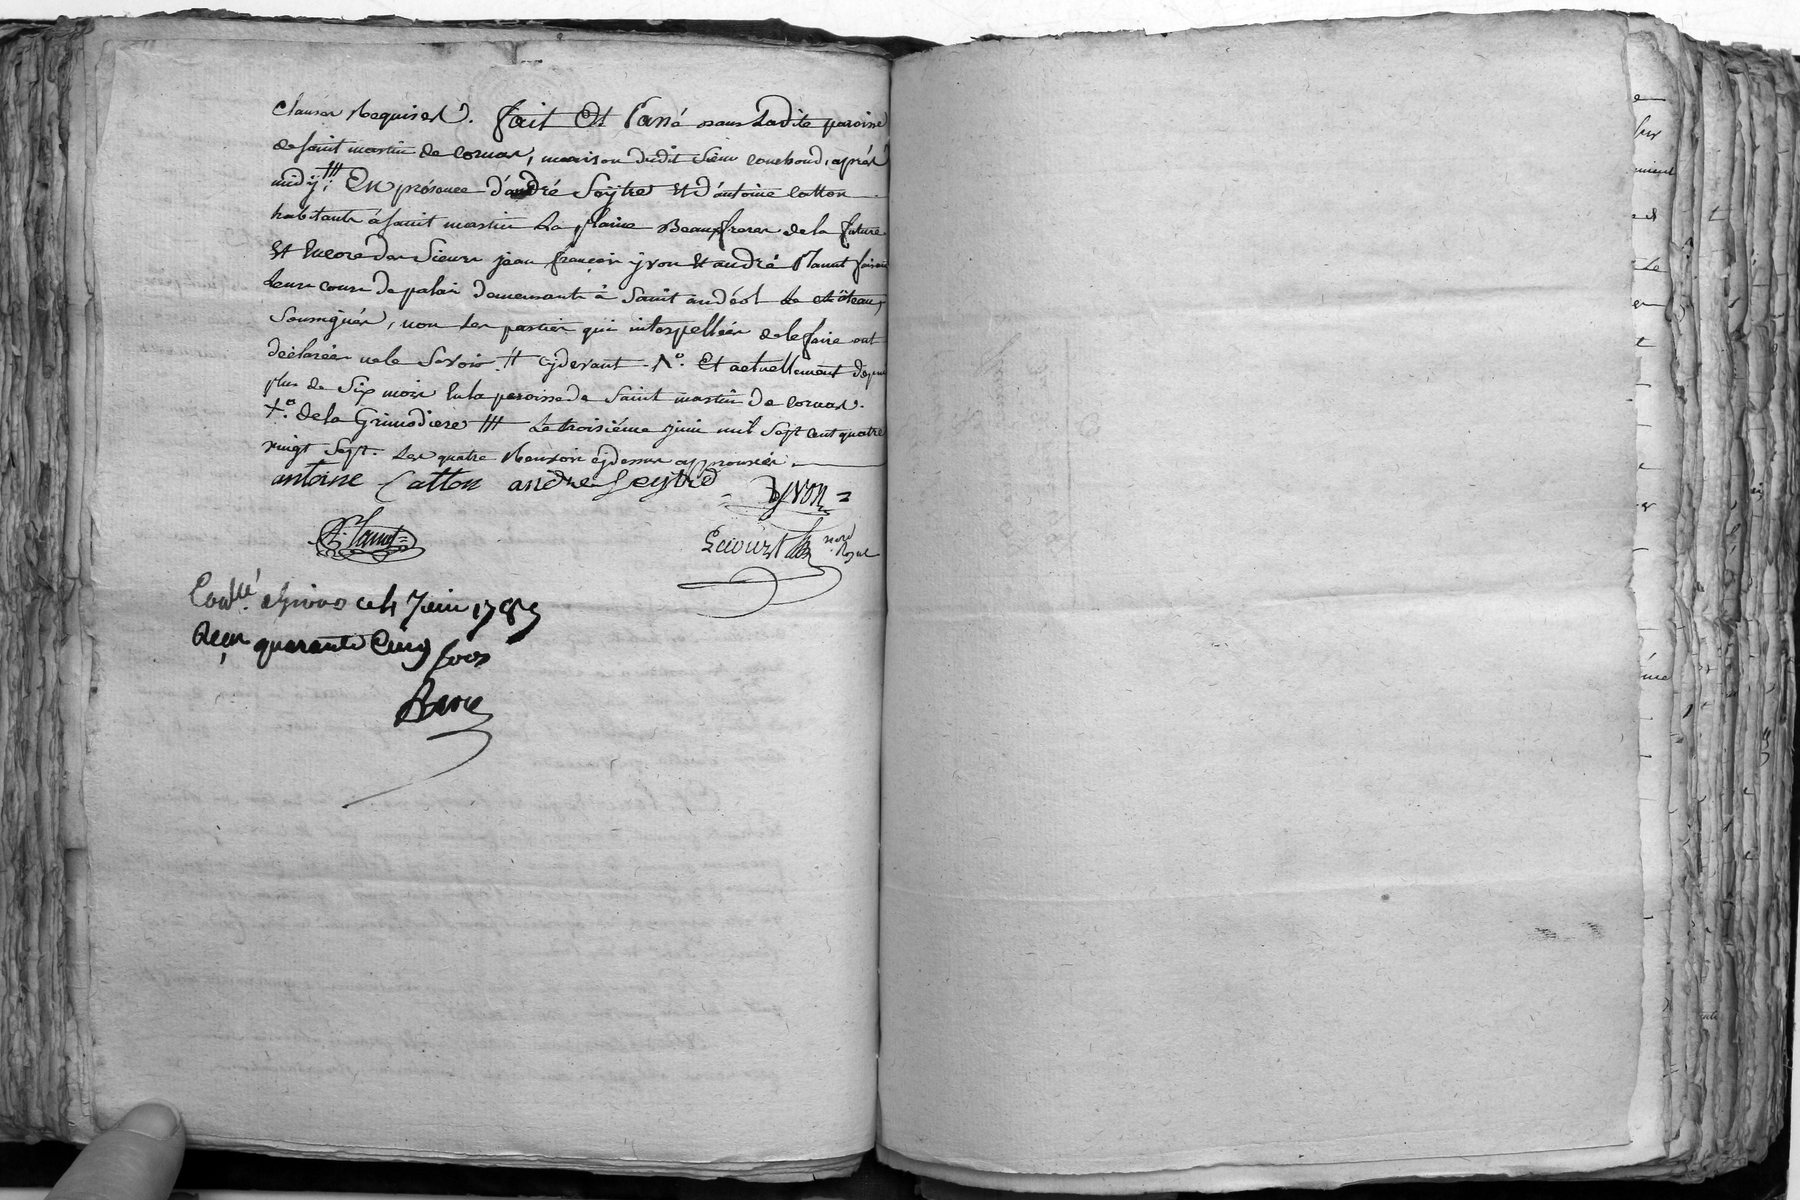 clauses Requises. fait Et Passé sous Ladite paroisse
de saint martin de Cornas, maison dudit Sieur Couchoud, aprés
midÿ /// En présence d'andré Seÿtre Et d'antoine Catton
habitants à saint martin La plaine Beauxfreres de la future
Et Encore des Sieurs jean françois yvon Et andré Planut faisant
Leurs cours de palais demeurants à Saint andéol Le château,
Soussignés, non Les parties qui interpellées de le faire ont
déclarées ne le Savoir. // cydevant. No. Et actuellement depuis
plus de Six mois En la paroisse de Saint martin De Cornas.
+o de la Grimodiere /// Le troisiéme juin mil Sept cent quatre
vingt Sept. Les quatre Renvois cydessus approuvés.
antoine Catton andre Seytre
yvon
A. Planut
not. Royal
Conllé. a Givors ce 4 Juin 1787
Recu quarante Cinq sous